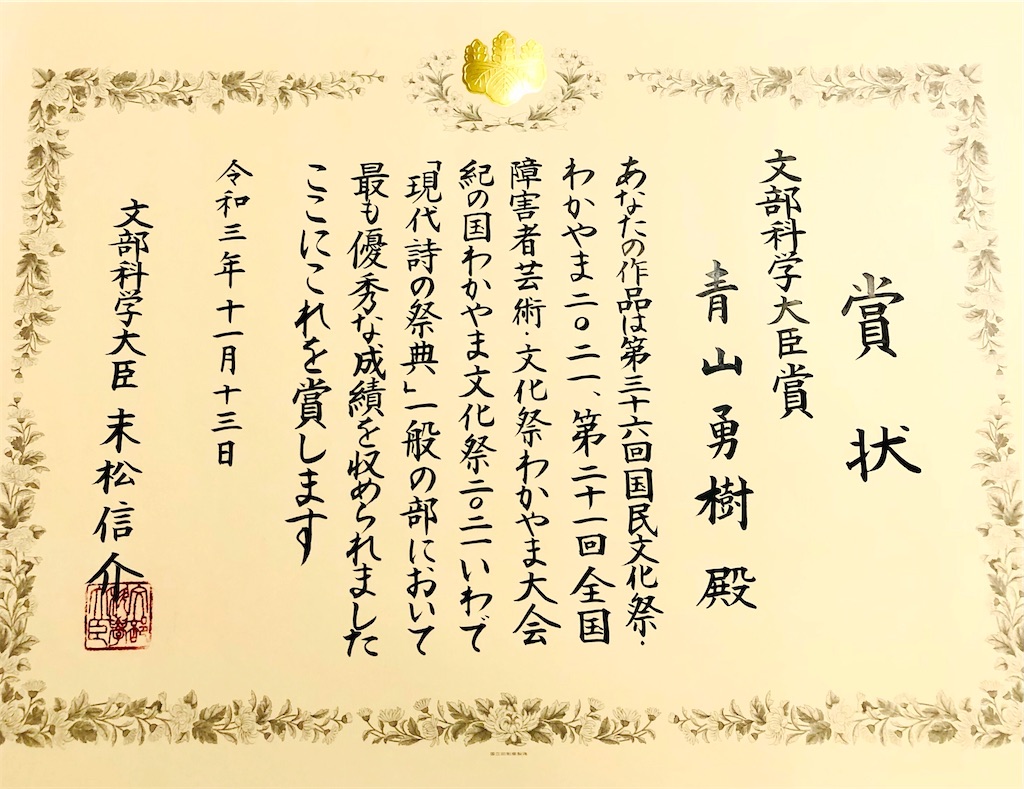 賞状
文部科学大臣賞
青山勇樹殿
あなたの作品は第三十六回国民文化祭・
わかやま二〇二一、第二十一回全国
障害者芸術・文化祭わかやま大会
紀の国わかやま文化祭二〇二一いわで
「現代詩の祭典」一般の部において
最も優秀な成績を収められました
ここにこれを賞します
令和三年十一月十三日
文部科学大臣 末松信介